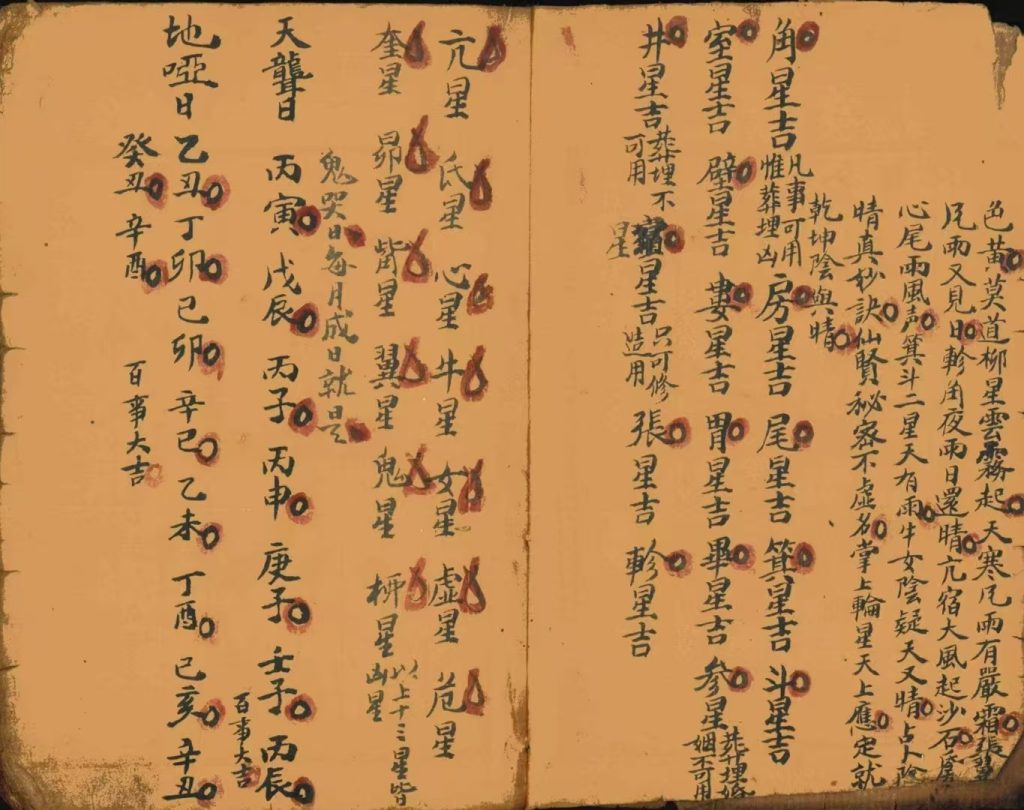 色黃莫道柳星雲霧起天寒凡雨有嚴霜張翼
凡雨又見日軫角夜雨日還晴亢宿大風起沙石
心尾雨風声箕斗二星天有雨牛女陰疑天又晴占卜陰
晴真妙訣仙賢秘密不虛名掌上輪星天上應定就
乾坤陰與晴
角星吉 凡事可用惟葬埋凶 房星吉 尾星吉 箕星吉 斗星吉
室星吉 壁星吉 婁星吉 胃星吉 畢星吉 參星 葬埋婚姻不可用
井星吉 葬埋不可用 星星吉 只可修造用 張星吉 軫星吉
亢星 氐星 心星 牛星 女星 虛星 危星
奎星 昴星 觜星 翼星 鬼星 柳星 以上十三星皆凶星
鬼哭日每月成日就是
天聾日 丙寅 戊辰 丙子 丙申 庚子 壬子 丙辰 百事大吉
地啞日 乙丑 丁卯 己卯 辛巳 乙未 丁酉 己亥 辛丑
癸丑 辛酉 百事大吉